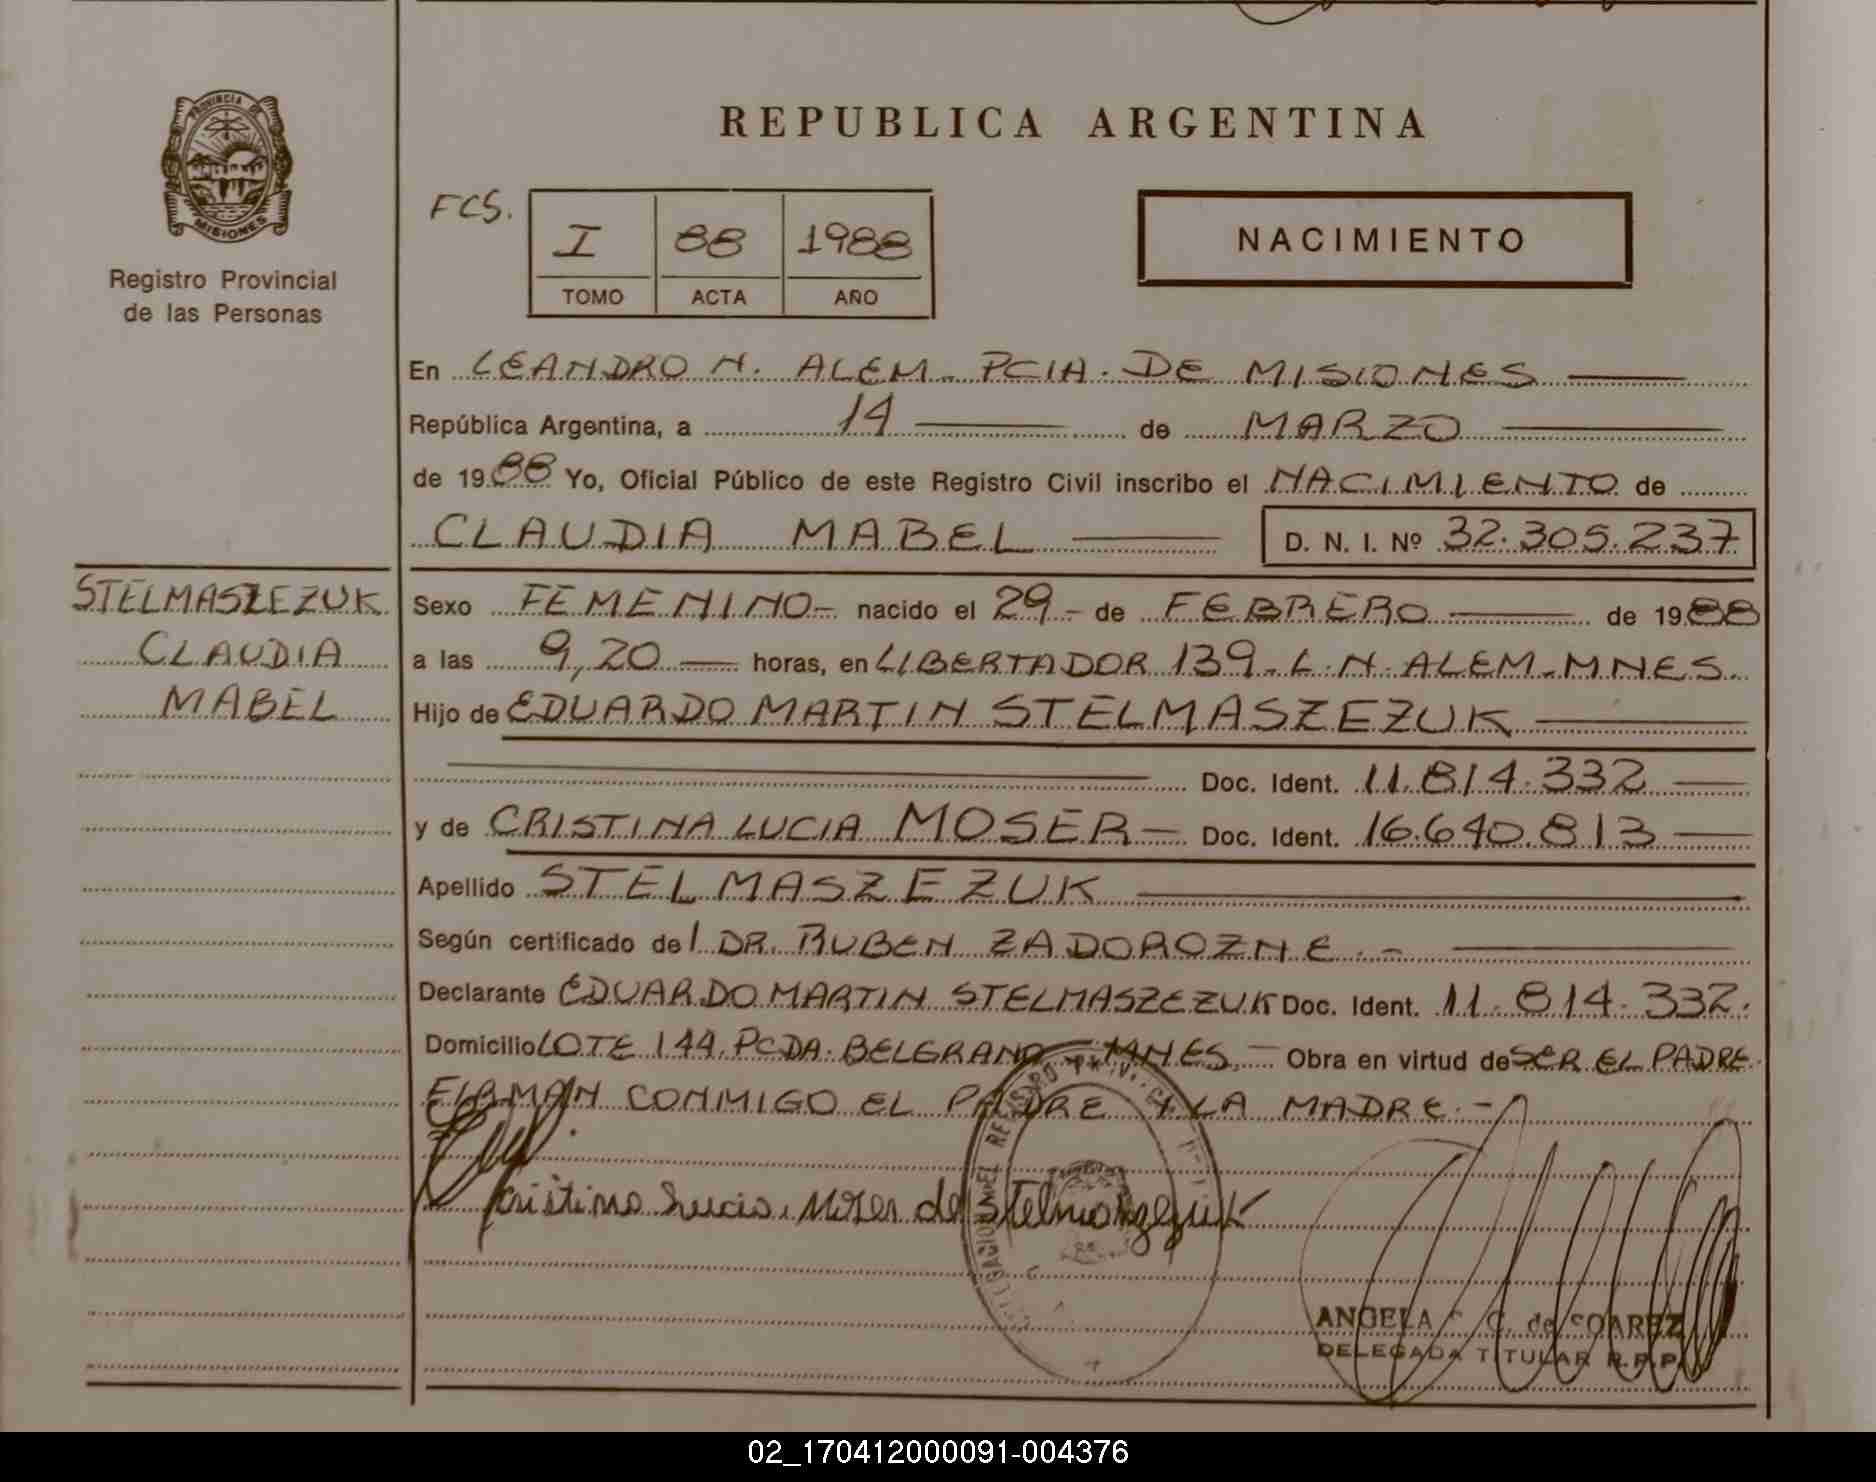 PROVINCIA DE
MISIONES
Registro Provincial
de las Personas
REPUBLICA ARGENTINA
FCS.
I 88 1988
TOMO ACTA AÑO
NACIMIENTO
En LEANDRO N. ALEM - PCIA. DE MISIONES
República Argentina, a 14 de MARZO
de 1988 Yo, Oficial Público de este Registro Civil inscribo el NACIMIENTO de
CLAUDIA MABEL D. N. I. Nº 32.305.237
STELMASZEZUK
CLAUDIA
MABEL
Sexo FEMENINO - nacido el 29 - de FEBRERO de 1988
a las 9,20 horas, en LIBERTADOR 139 - L. N. ALEM - MNES.
Hijo de EDUARDO MARTIN STELMASZEZUK
Doc. Ident. 11.814.332
y de CRISTINA LUCIA MOSER - Doc. Ident. 16.640.813
Apellido STELMASZEZUK
Según certificado del DR. RUBEN ZADOROZNE . -
Declarante EDUARDO MARTIN STELMASZEZUK Doc. Ident. 11.814.332.
Domicilio LOTE 144. PCDA. BELGRANO - MNES. - Obra en virtud de SER EL PADRE.
FIRMAN CONMIGO EL PADRE Y LA MADRE . -
Cristina Lucia Moser de Stelmaszezuk
REGISTRO
ANGELA C. de SOAREZ
DELEGADA TITULAR R.P.P.
02_170412000091-004376